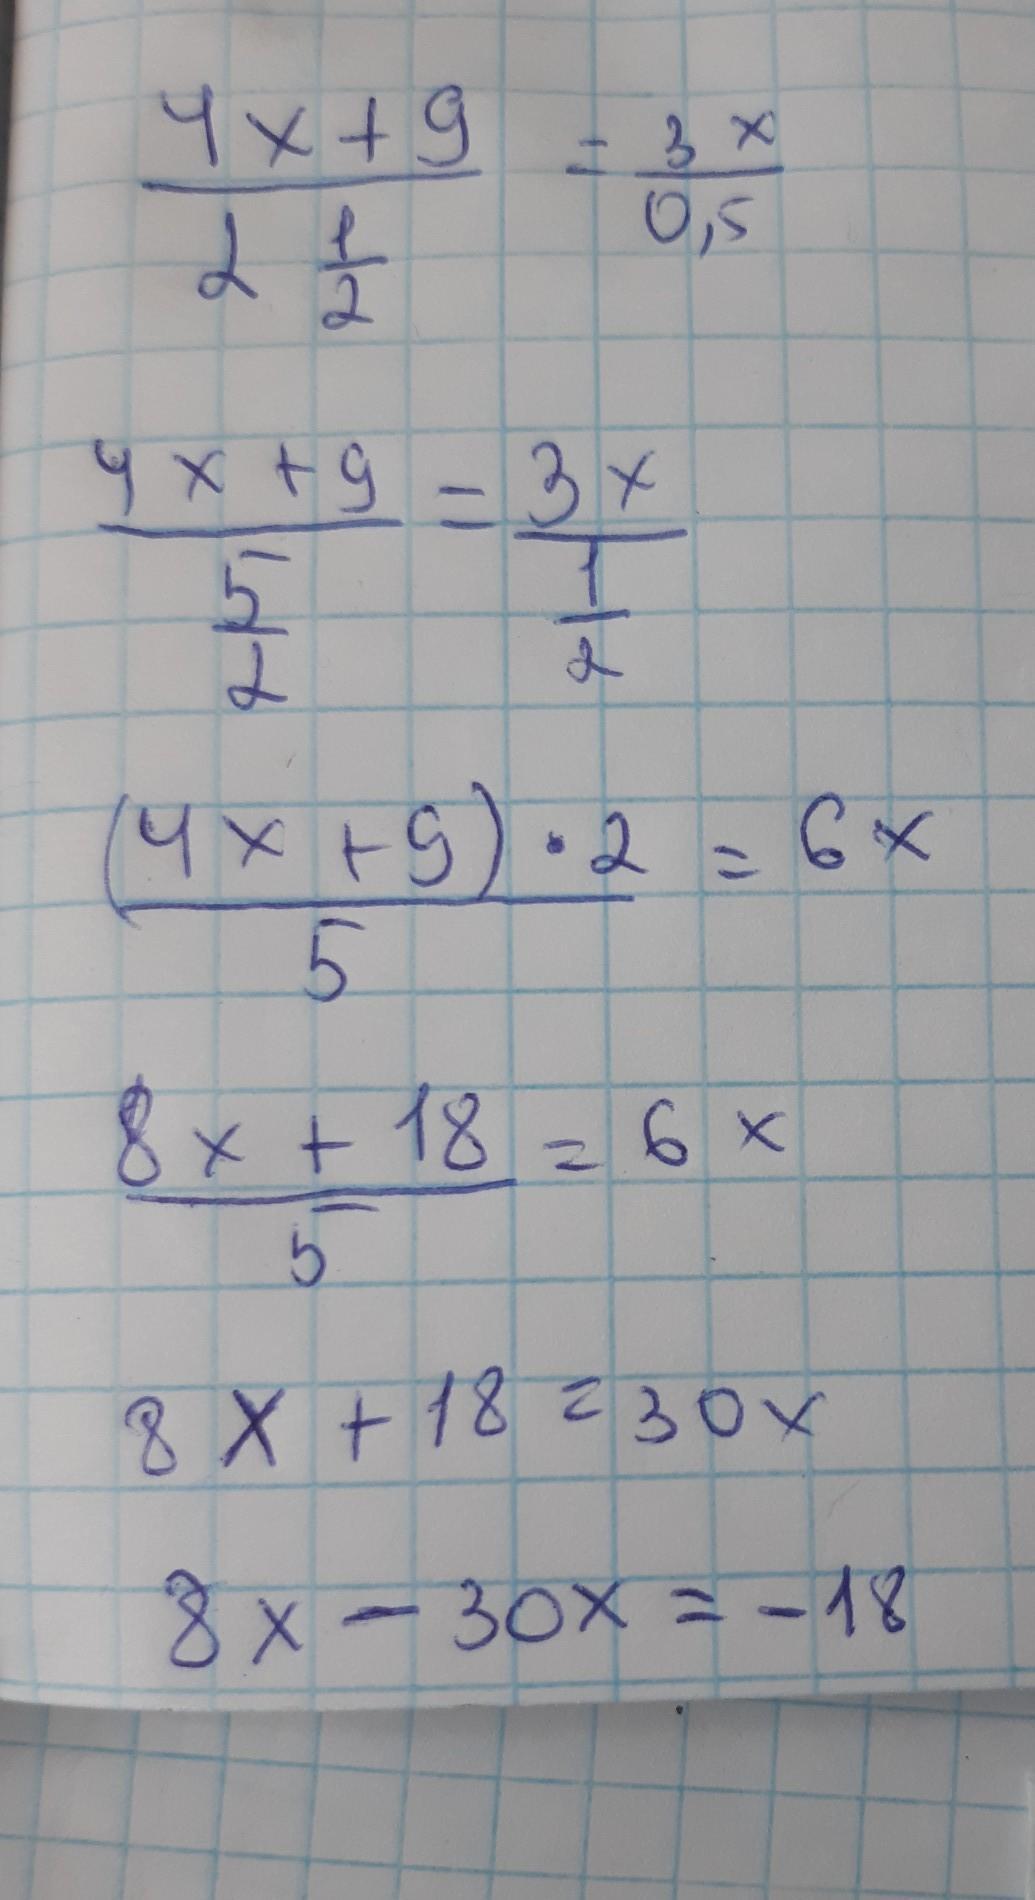 (4x+9)/(2 1/2) = 3x/0,5
(4x+9)/(5/2) = 3x/(1/2)
((4x+9)·2)/5 = 6x
(8x+18)/5 = 6x
8x+18=30x
8x-30x=-18